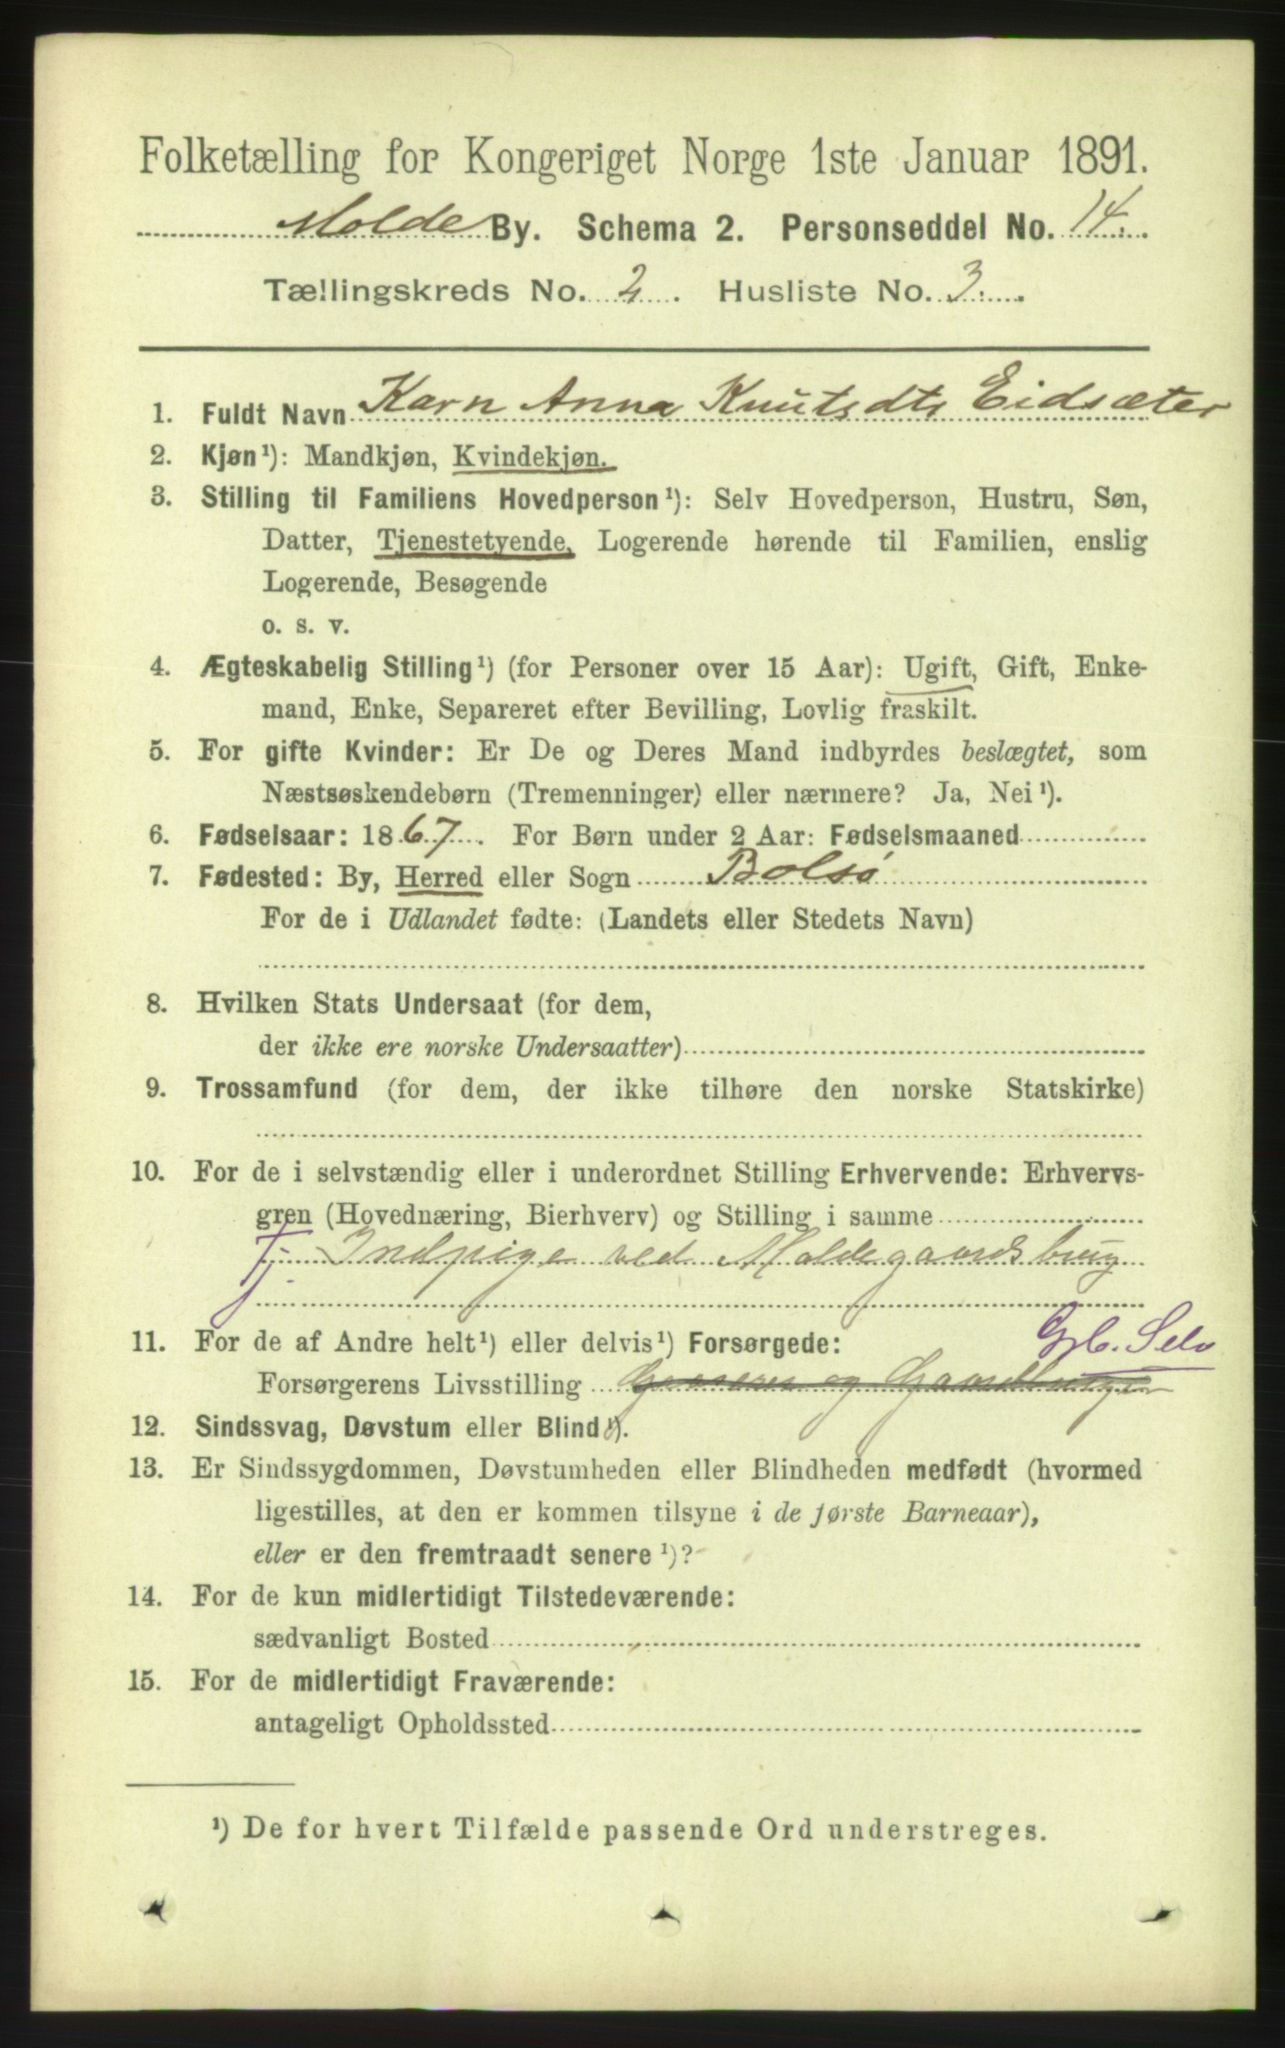 Folketælling for Kongeriget Norge 1ste Januar 1891.
Molde By. Schema 2. Personseddel No. 14.
Tællingskreds No. 2. Husliste No. 3.
1. Fuldt Navn Karn Anna Knutsdtr Eidsæter
2. Kjøn¹): Mandkjøn, Kvindekjøn.
3. Stilling til Familiens Hovedperson¹): Selv Hovedperson, Hustru, Søn,
Datter, Tjenestetyende, Logerende hørende til Familien, enslig
Logerende, Besøgende
o. s. v.
4. Ægteskabelig Stilling¹) (for Personer over 15 Aar): Ugift, Gift, Enke-
mand, Enke, Separeret efter Bevilling, Lovlig fraskilt.
5. For gifte Kvinder: Er De og Deres Mand indbyrdes beslægtet, som
Næstsøskendebørn (Tremenninger) eller nærmere? Ja, Nei¹).
6. Fødselsaar: 1867. For Børn under 2 Aar: Fødselsmaaned
7. Fødested: By, Herred eller Sogn Bolsø
For de i Udlandet fødte: (Landets eller Stedets Navn)
8. Hvilken Stats Undersaat (for dem,
der ikke ere norske Undersaatter)
9. Trossamfund (for dem, der ikke tilhøre den norske Statskirke)
10. For de i selvstændig eller i underordnet Stilling Erhvervende: Erhvervs-
gren (Hovednæring, Bierhverv) og Stilling i samme
Tj. Indpige ved Moldegaardsbrug
11. For de af Andre helt¹) eller delvis¹) Forsørgede: Gb. Selv
Forsørgerens Livsstilling og
12. Sindssvag, Døvstum eller Blind¹).
13. Er Sindssygdommen, Døvstumheden eller Blindheden medfødt (hvormed
ligestilles, at den er kommen tilsyne i de første Barneaar),
eller er den fremtraadt senere¹)?
14. For de kun midlertidigt Tilstedeværende:
sædvanligt Bosted
15. For de midlertidigt Fraværende:
antageligt Opholdssted
¹) De for hvert Tilfælde passende Ord understreges.